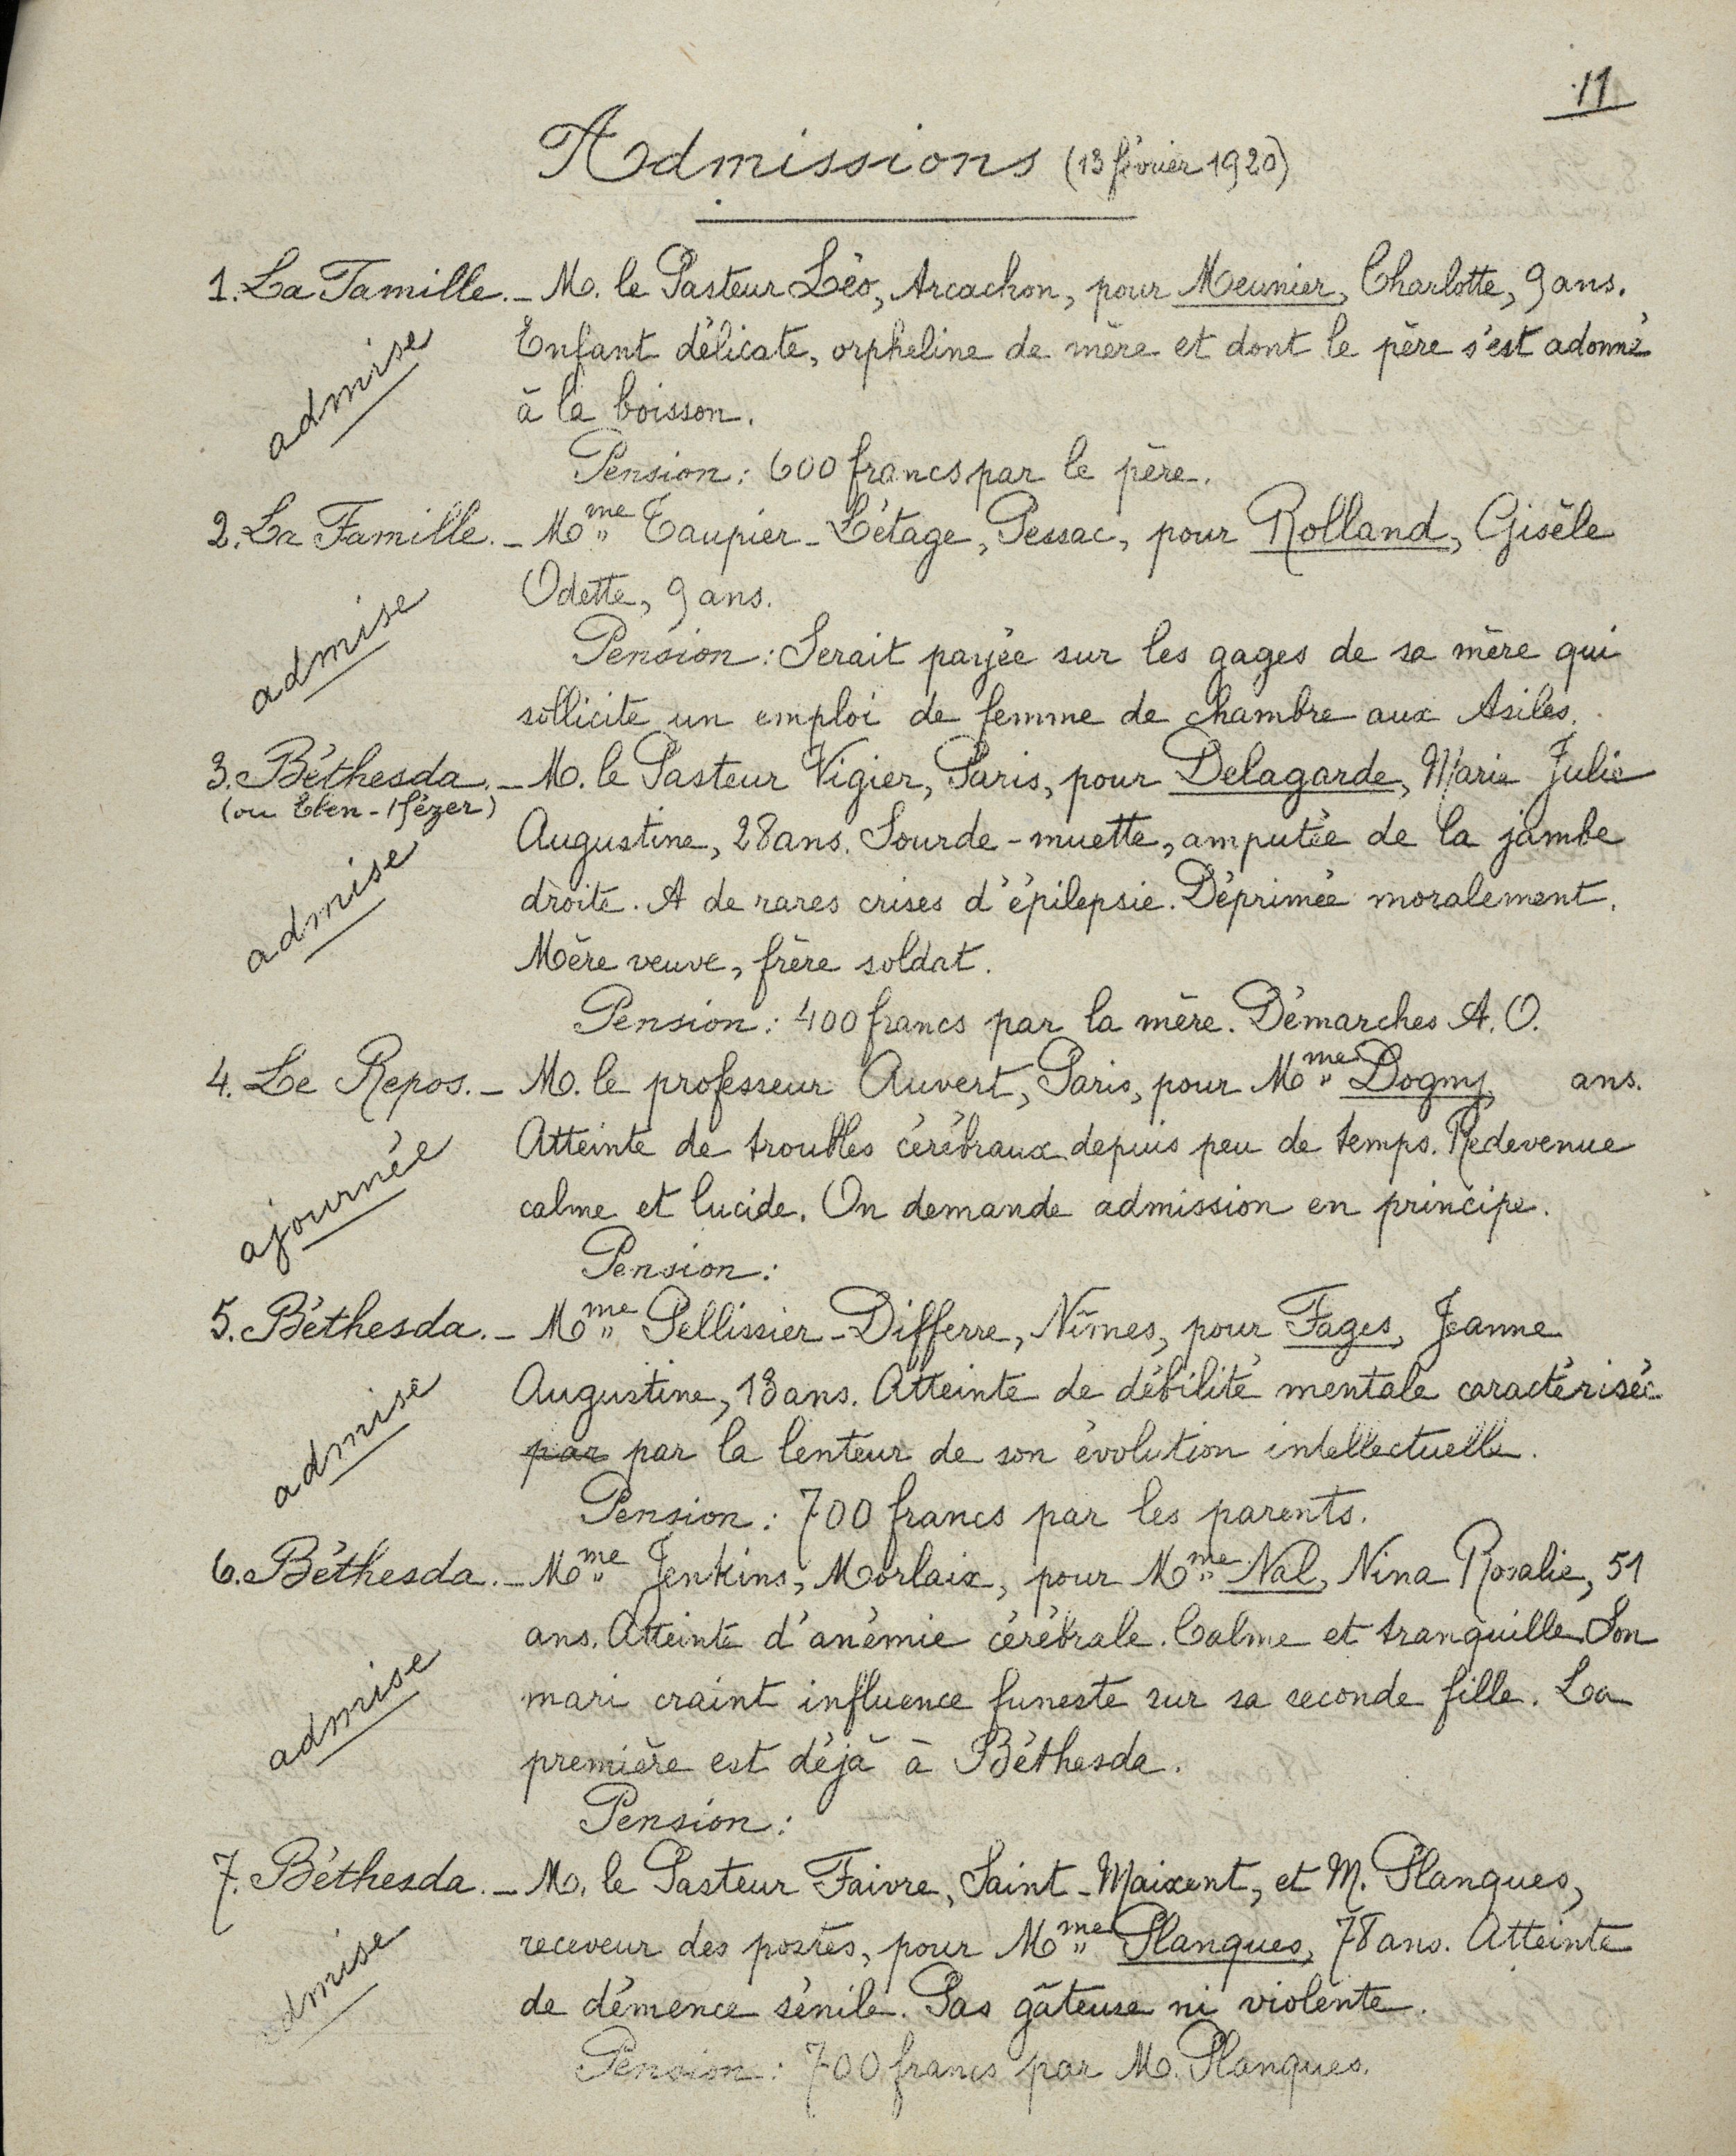 11
Admissions (13 février 1920)
1. La Famille. _ M. le Pasteur Léo, Arcachon, pour Meunier, Charlotte, 9 ans.
admise
Enfant délicate, orpheline de mère et dont le père s'est adonné
à la boisson.
Pension : 600 francs par le père.
2. La Famille. _ Mme Taupier-Létage, Pessac, pour Rolland, Gisèle
admise
Odette, 9 ans.
Pension : Serait payée sur les gages de sa mère qui
sollicite un emploi de femme de chambre aux Asiles.
3. Béthesda. _ M. le Pasteur Vigier, Paris, pour Delagarde, Marie Julie
(ou Eben-Hézer)
admise
Augustine, 28 ans. Sourde-muette, amputée de la jambe
droite. A de rares crises d'épilepsie. Déprimée moralement.
Mère veuve, frère soldat.
Pension : 400 francs par la mère. Démarches A. O.
4. Le Repos. _ M. le professeur Auvert, Paris, pour Mme Dogny, ans.
ajournée
Atteinte de troubles cérébraux depuis peu de temps. Redevenue
calme et lucide. On demande admission en principe.
Pension :
5. Béthesda. _ Mme Pellissier-Differre, Nîmes, pour Fages, Jeanne
admise
Augustine, 13 ans. Atteinte de débilité mentale caractérisée
par par la lenteur de son évolution intellectuelle.
Pension : 700 francs par les parents.
6. Béthesda. _ Mme Jenkins, Morlaix, pour Mme Nal, Nina Rosalie, 51
admise
ans. Atteinte d'anémie cérébrale. Calme et tranquille. Son
mari craint influence funeste sur sa seconde fille. La
première est déjà à Béthesda.
Pension :
7. Béthesda. _ M. le Pasteur Faivre, Saint-Maixent, et M. Planques,
admise
receveur des postes, pour Mme Planques, 78 ans. Atteinte
de démence sénile. Pas gâteuse ni violente.
Pension : 700 francs par M. Planques.